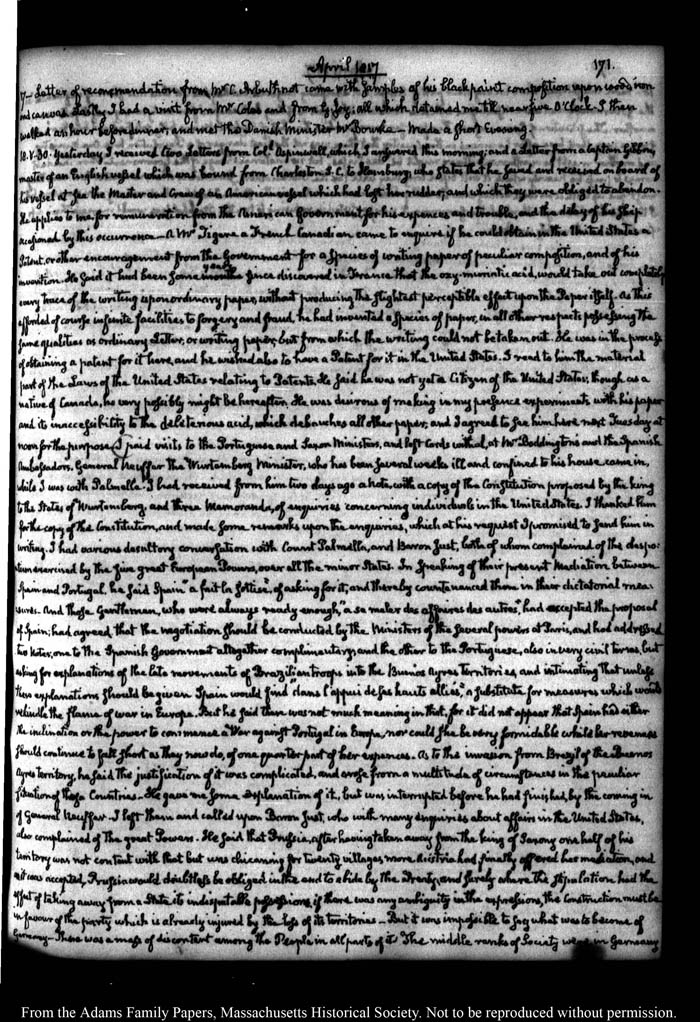 April 1817
171.
17- Letter of recommendation from Mr C. Arbuthnot came with Samples of his black paint composition upon wood, iron
and canvas. Lastly I had a visit from Mr Colas and from G. Joy; all which detained me till near five O'Clock. I then
walked an hour before dinner, and met the Danish Minister Mr Bourke — Made a short Evening.
18. V.30. Yesterday I received two Letters from Coll. Aspinwall, which I answered this morning; and a Letter from a Captain Gibbon,
master of an English vessel which was bound from Charleston S.C. to Hamburg; who states that he saved and received on board of
his vessel at Sea the Master and Crew of an American vessel which had lost her rudder, and which they were obliged to abandon.
He applies to me for remuneration from the American Government for his expences and trouble, and the delay of his Ship
occasioned by this occurrence — A Mr Figure a French Canadian came to enquire if he could obtain in the United States a
Patent, or other encouragement from the Government for a Species of writing paper of peculiar composition, and of his
invention. He said it had been some years since discovered in France that the oxy-muriatic acid, would take out completely
every trace of the writing upon ordinary paper, without producing the slightest perceptible effect upon the Paper itself. As this
afforded of course infinite facilities to forgery and fraud, he had invented a species of paper, in all other respects possessing the
same qualities as ordinary Letter, or writing paper, but from which the writing could not be taken out. He was in the process
of obtaining a patent for it here, and he wished also to have a Patent for it in the United States. I read to him the material
part of the Laws of the United States relating to Patents. He said he was not yet a Citizen of the United States; though as a
native of Canada, he very possibly might be hereafter. He was desirous of making in my presence experiments with his paper
and its inaccessibility to the deleterious acid, which debauches all other paper; and I agreed to see him here next Tuesday at
noon for the purpose. I paid visits to the Portuguese and Saxon Ministers, and left Cards with at Mr Boddington's and the Spanish
Ambassadors. General Neuffar the Wurtemberg Minister, who has been several weeks ill and confined to his house came in,
while I was with Palmella. I had received from him two days ago a note, with a copy of the Constitution proposed by the king
to the States of Wurtemberg, and three Memoranda, of enquiries concerning individuals in the United States. I thanked him
for the copy of the Constitution, and made some remarks upon the enquiries, which at his request I promised to send him in
writing. I had various desultory conversation with Count Palmella, and Baron Just, both of whom complained of the despo-
tism exercised by the five great European Powers, over all the minor States. In speaking of their present Mediation between
Spain and Portugal, he said Spain "a fait la sottise", of asking for it, and thereby countenanced them in their dictatorial mea-
sures. And those Gentlemen, who were always ready enough, "a se meler des affaires des autres", had accepted the proposal
of Spain; had agreed that the negotiation should be conducted by the Ministers of the several powers at Paris, and had addressed
two Notes, one to the Spanish Government altogether complimentary, and the other to the Portuguese, also in very civil terms, but
asking for explanations of the late movements of Brazilian troops into the Buenos Ayres territories, and intimating that unless
these explanations should be given Spain would find "dans l'appui de ses hauts alliés," a substitute for measures which would
rekindle the flame of war in Europe. But he said there was not much meaning in that, for it did not appear that Spain had either
the inclination or the power to commence a War against Portugal in Europe, nor could she be very formidable while her revenues
should continue to fall short as they now do, of one quarter part of her expences. As to the invasion from Brazil of the Buenos
Ayres territory, he said the justification of it was complicated, and arose from a multitude of circumstances in the peculiar
situation of those Countries. He gave me some explanation of it, but was interrupted before he had finished, by the coming in
of General Neuffar. I left them and called upon Baron Just, who with many enquiries about affairs in the United States,
also complained of the great Powers. He said that Prussia, after having taken away from the king of Saxony one half of his
territory was not content with that but was chicaning for twenty villages more. Austria had finally offered her mediation, and
as it was accepted, Prussia would doubtless be obliged in the end to abide by the Treaty, and surely where the stipulation had the
effect of taking away from a State its indisputable possessions, if there was any ambiguity in the expressions, the construction must be
in favour of the party which is already injured by the loss of its territories. — But it was impossible to say what was to become of
Germany — There was a mass of discontent among the People in all parts of it. The middle ranks of Society were in Germany
From the Adams Family Papers, Massachusetts Historical Society. Not to be reproduced without permission.